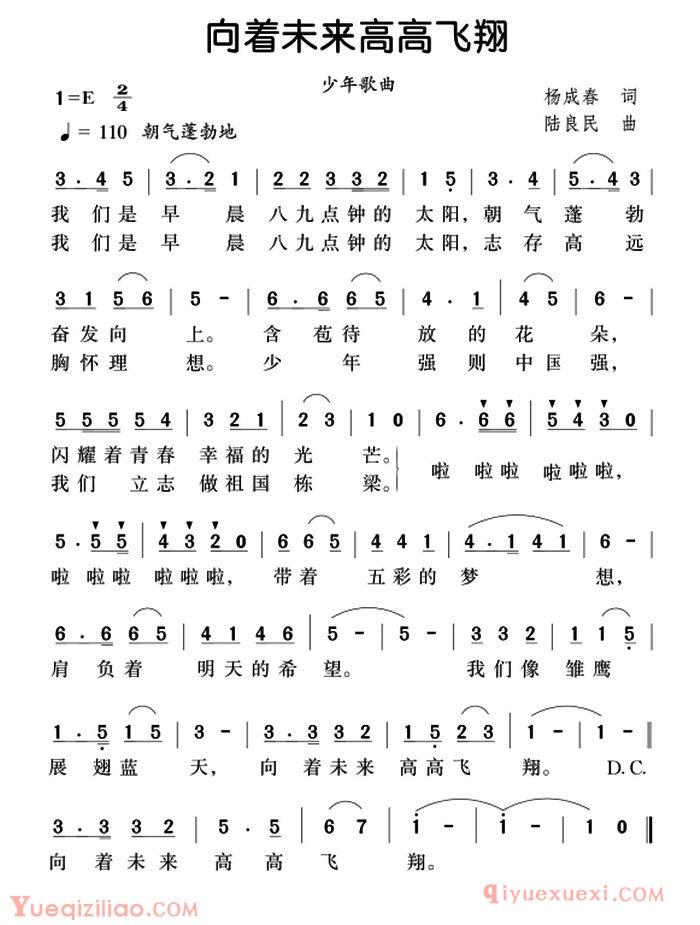 向着未来高高飞翔
少年歌曲
1=E 2/4
杨成春 词
♩= 110 朝气蓬勃地
陆良民 曲
3 . 4 5 | 3 . 2 1 | 2 2 3 3 2 | 1 5 | 3 . 2 | 5 . 4 3 |
我 们 是 早 晨 八 九 点 钟 的 太 阳, 朝 气 蓬 勃
我 们 是 早 晨 八 九 点 钟 的 太 阳, 志 存 高 远
3 1 5 6 | 5 - | 6 . 6 6 5 | 4 . 1 | 4 5 | 6 - |
奋 发 向 上。 含 苞 待 放 的 花 朵,
胸 怀 理 想。 少 年 强 则 中 国 强,
5 5 5 5 4 | 3 2 1 | 2 3 | 1 0 | 6 . 6 6 | 5 4 3 0 |
闪 耀 着 青 春 幸 福 的 光 芒。 啦 啦 啦 啦 啦 啦,
我 们 立 志 做 祖 国 栋 梁。
5 . 5 5 | 4 3 2 0 | 6 6 5 | 4 4 1 | 4 . 1 4 1 | 6 - |
啦 啦 啦 啦 啦 啦, 带 着 五 彩 的 梦 想,
6 . 6 6 5 | 4 1 4 6 | 5 - | 5 - | 3 3 2 | 1 1 5 |
肩 负 着 明 天 的 希 望。 我 们 像 雏 鹰
1 . 5 1 5 | 3 - | 3 . 3 3 2 | 1 5 2 3 | 1 - | 1 - ‖
展 翅 蓝 天, 向 着 未 来 高 高 飞 翔。 D.C.
3 . 3 3 2 | 5 . 5 | 6 7 | 1 - | 1 - | 1 0 ‖
向 着 未 来 高 高 飞 翔。
Yueqiziliao.COM
Qiyuexuexi.COM